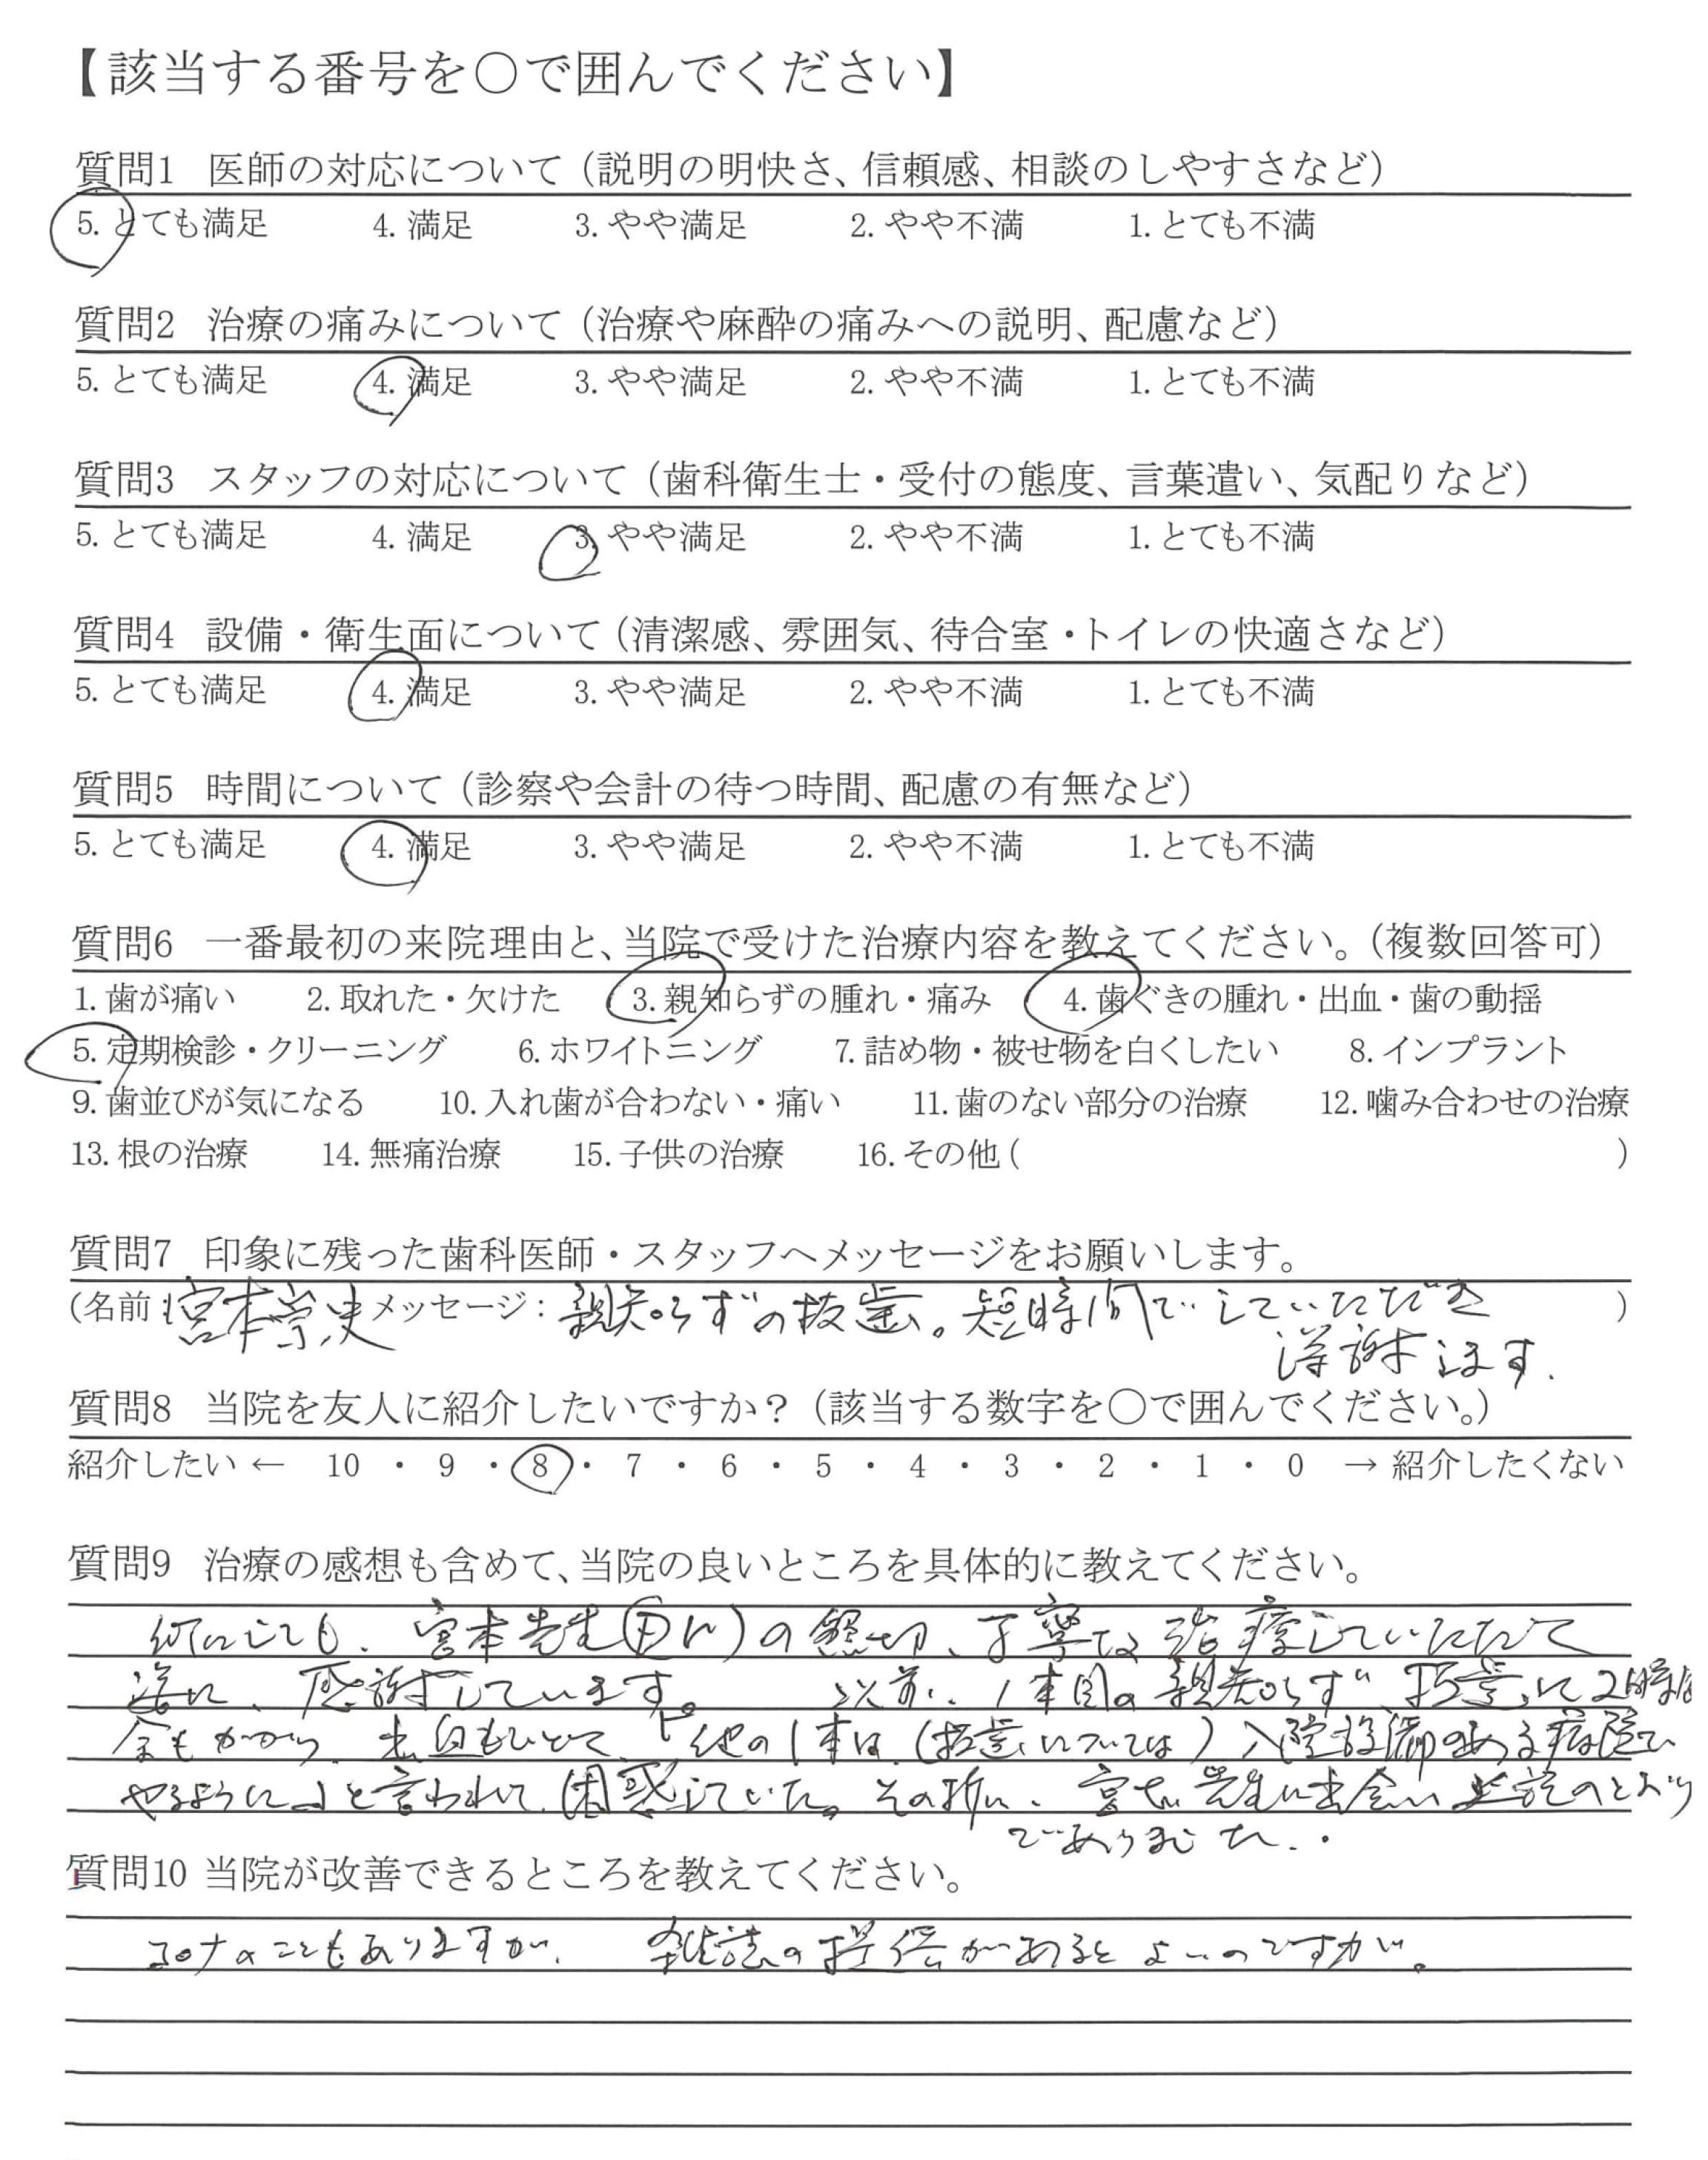 【該当する番号を〇で囲んでください】
質問1 医師の対応について（説明の明快さ、信頼感、相談のしやすさなど）
5. とても満足 4. 満足 3. やや満足 2. やや不満 1. とても不満
質問2 治療の痛みについて（治療や麻酔の痛みへの説明、配慮など）
5. とても満足 4. 満足 3. やや満足 2. やや不満 1. とても不満
質問3 スタッフの対応について（歯科衛生士・受付の態度、言葉遣い、気配りなど）
5. とても満足 4. 満足 3. やや満足 2. やや不満 1. とても不満
質問4 設備・衛生面について（清潔感、雰囲気、待合室・トイレの快適さなど）
5. とても満足 4. 満足 3. やや満足 2. やや不満 1. とても不満
質問5 時間について（診察や会計の待つ時間、配慮の有無など）
5. とても満足 4. 満足 3. やや満足 2. やや不満 1. とても不満
質問6 一番最初の来院理由と、当院で受けた治療内容を教えてください。（複数回答可）
1. 歯が痛い 2. 取れた・欠けた 3. 親知らずの腫れ・痛み 4. 歯ぐきの腫れ・出血・歯の動揺
5. 定期検診・クリーニング 6. ホワイトニング 7. 詰め物・被せ物を白くしたい 8. インプラント
9. 歯並びが気になる 10. 入れ歯が合わない・痛い 11. 歯のない部分の治療 12. 噛み合わせの治療
13. 根の治療 14. 無痛治療 15. 子供の治療 16. その他 ( )
質問7 印象に残った歯科医師・スタッフへメッセージをお願いします。
(名前: 宮本崇史 メッセージ: 親知らずの抜歯。短時間でしていただき )
感謝します.
質問8 当院を友人に紹介したいですか？（該当する数字を〇で囲んでください。）
紹介したい ← 10 ・ 9 ・ 8 ・ 7 ・ 6 ・ 5 ・ 4 ・ 3 ・ 2 ・ 1 ・ 0 → 紹介したくない
質問9 治療の感想も含めて、当院の良いところを具体的に教えてください。
何にしても、宮本先生の懇切、丁寧な治療していただいて
感謝しています。以前、1本目の親知らず抜歯に2時間
余もかかり、出血もひどく、「他の1本は（抜歯については）入院設備のある病院で
やるように」と言われて、困惑していた。その折に、宮本先生に出会い上記のとおり
でありました.
質問10 当院が改善できるところを教えてください。
コロナのこともありますが、雑誌の提供があるとよいのですが。